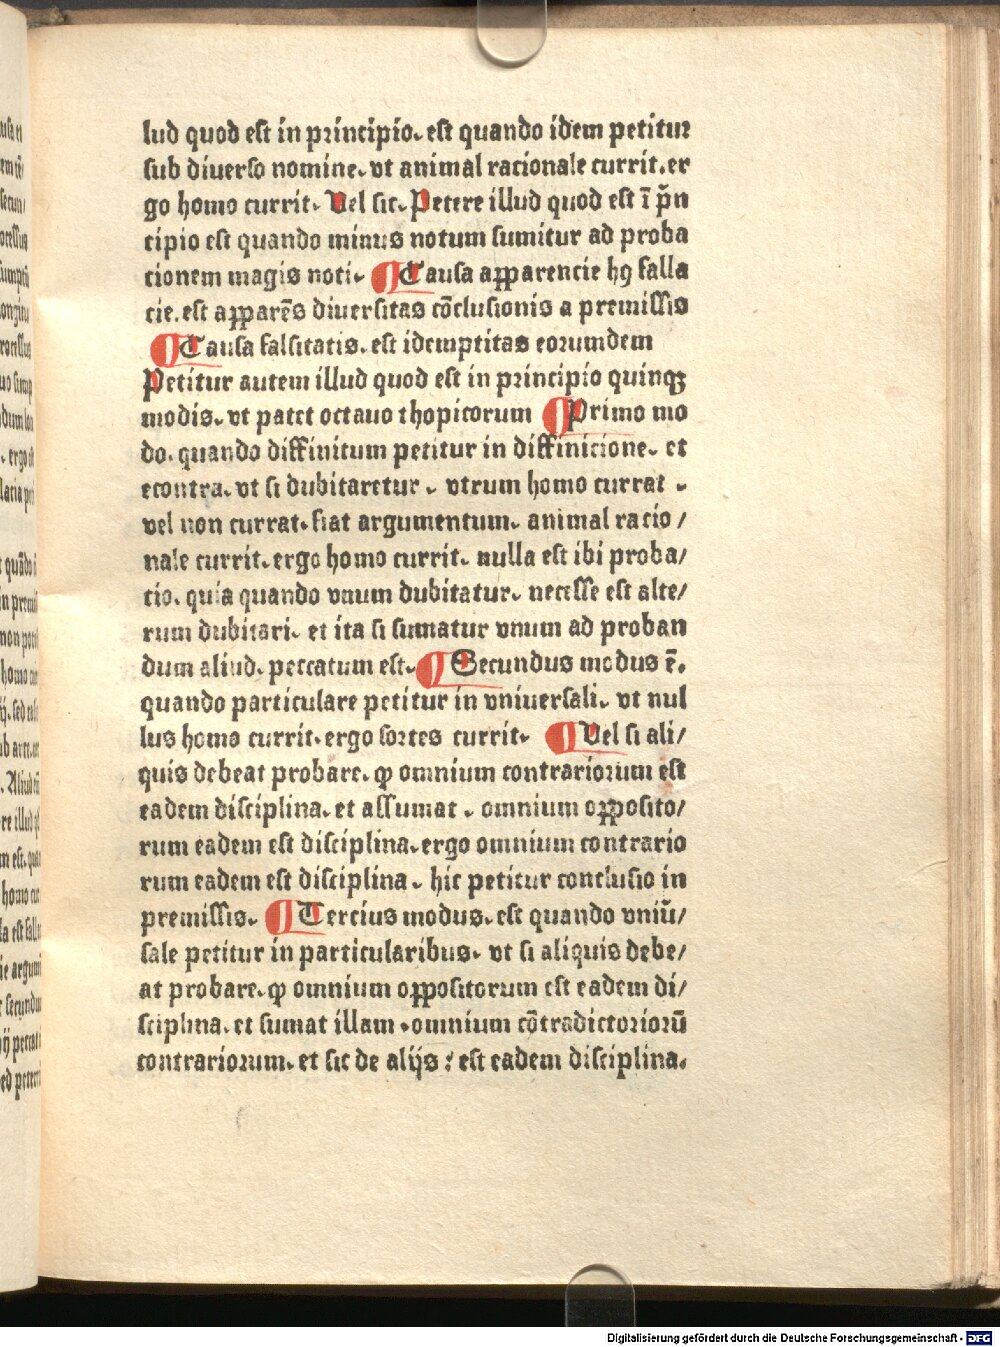 lud quod est in principio. est quando idem petitur
sub diuerso nomine. vt animal racionale currit. er
go homo currit. Vel sic. Petere illud quod est ī pͥn
cipio est quando minus notum sumitur ad proba
cionem magis noti. ¶ Causa apparencie hꝯ falla
cie. est apparēs diuersitas cōclusionis a premissis
¶ Causa falsitatis. est idemptitas eorumdem
Petitur autem illud quod est in principio quinqꝫ
modis. vt patet octauo thopicorum ¶ Primo mo
do. quando diffinitum petitur in diffinicione. et
econtra. vt si dubitaretur. vtrum homo currat .
vel non currat. fiat argumentum. animal racio/
nale currit. ergo homo currit. nulla est ibi proba/
tio. quia quando vnum dubitatur. necesse est alte/
rum dubitari. et ita si sumatur vnum ad proban
dum aliud. peccatum est. ¶ Secundus modus ē.
quando particulare petitur in vniuersali. vt nul
lus homo currit. ergo sortes currit. ¶ Vel si ali/
quis debeat probare. ꝙ omnium contrariorum est
eadem disciplina. et assumat . omnium opposito/
rum eadem est disciplina. ergo omnium contrario
rum eadem est disciplina . hic petitur conclusio in
premissis. ¶ Tercius modus. est quando vniū/
sale petitur in particularibus. vt si aliquis debe/
at probare. ꝙ omnium oppositorum est eadem di/
sciplina. et sumat illam . omnium cōtradictoriorū
contrariorum. et sic de alijs : est eadem disciplina.
Digitalisierung gefördert durch die Deutsche Forschungsgemeinschaft - DFG